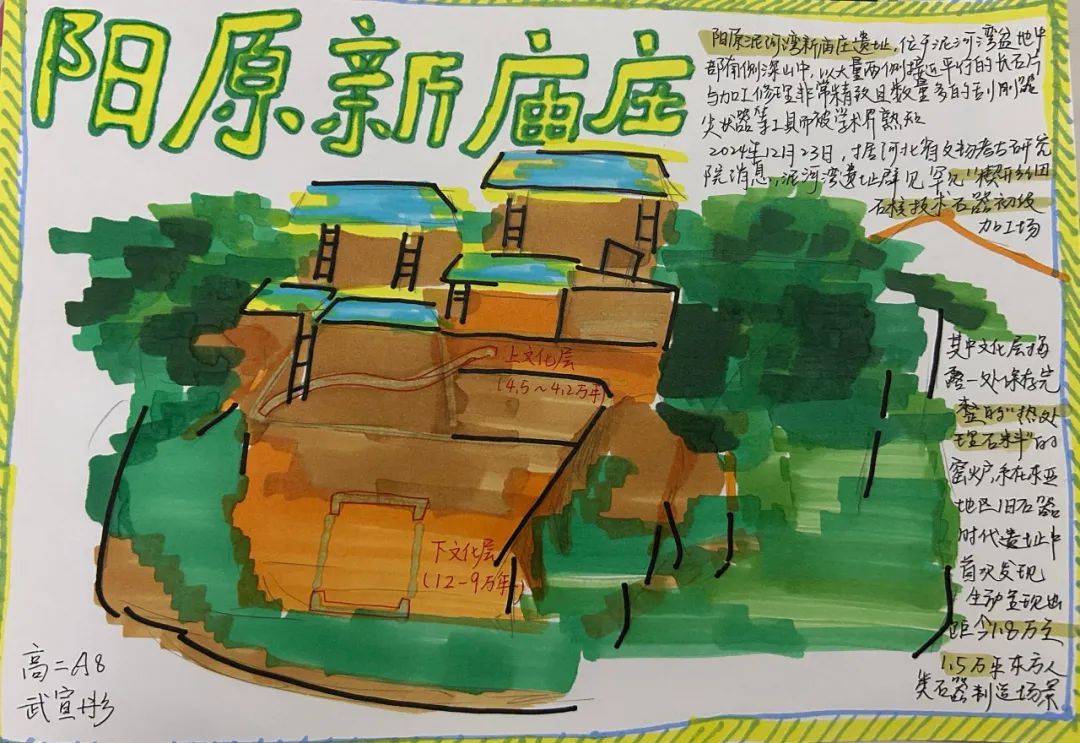 阳原新庙庄
阳原泥河湾新庙庄遗址,位于泥河湾盆地中
部南侧深山中,以大量两侧接近平行的长石片
与加工修理非常精致且数量多的刮削器
尖状器等工具而被学术界熟知
2024年12月23日,据河北省文物考古研究
院消息,泥河湾遗址群见罕见"楔形细
石核技术石器初级
加工场
上文化层
(4.5~4.2万年)
其中文化层揭
露一处保存完
整的"热处
理石料"的
窑火炉,系在东亚
地区旧石器
时代遗址中
首次发现
生动呈现出
距今1.8万至
1.5万年东方人
类石器制造场景
下文化层
(12-9万年)
高二A8
武宣彤